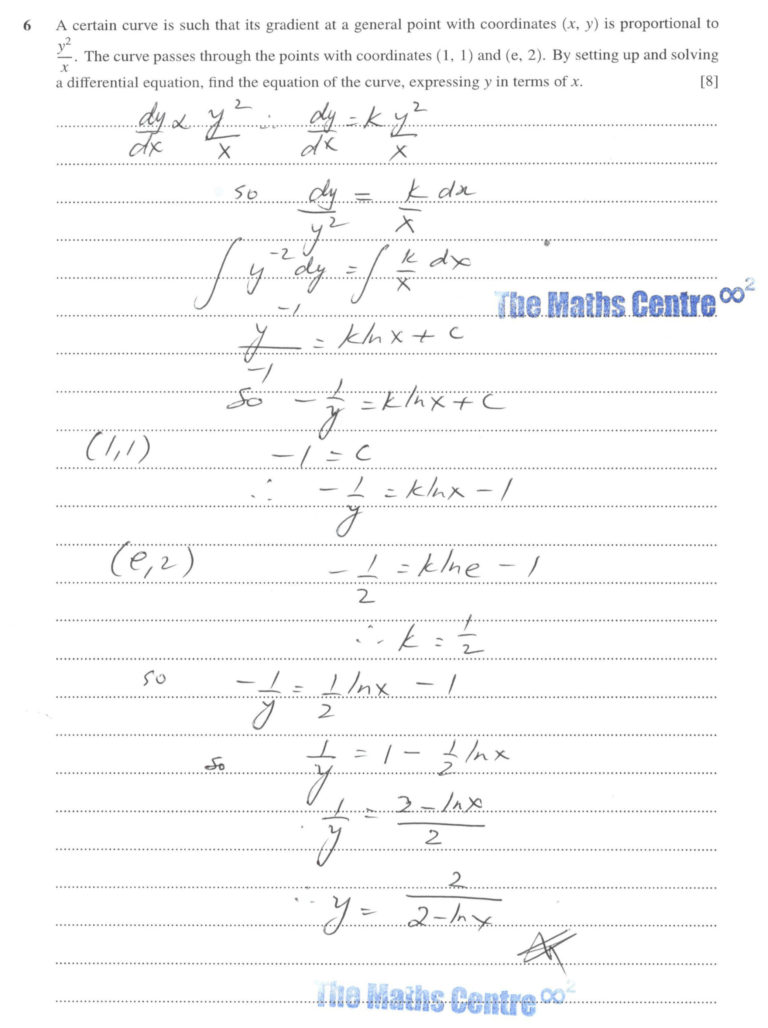 6 A certain curve is such that its gradient at a general point with coordinates (x, y) is proportional to
y²/x. The curve passes through the points with coordinates (1, 1) and (e, 2). By setting up and solving
a differential equation, find the equation of the curve, expressing y in terms of x. [8]
dy/dx ∝ y²/x ∴ dy/dx = k y²/x
so dy/y² = k/x dx
∫ y⁻² dy = ∫ k/x dx
The Maths Centre ∞²
y⁻¹/-1 = k ln x + c
So -1/y = k ln x + c
(1,1) -1 = c
∴ -1/y = k ln x - 1
(e,2) -1/2 = k ln e - 1
∴ k = 1/2
so -1/y = 1/2 ln x - 1
so 1/y = 1 - 1/2 ln x
1/y = 2 - ln x/2
∴ y = 2/2 - ln x
The Maths Centre ∞²